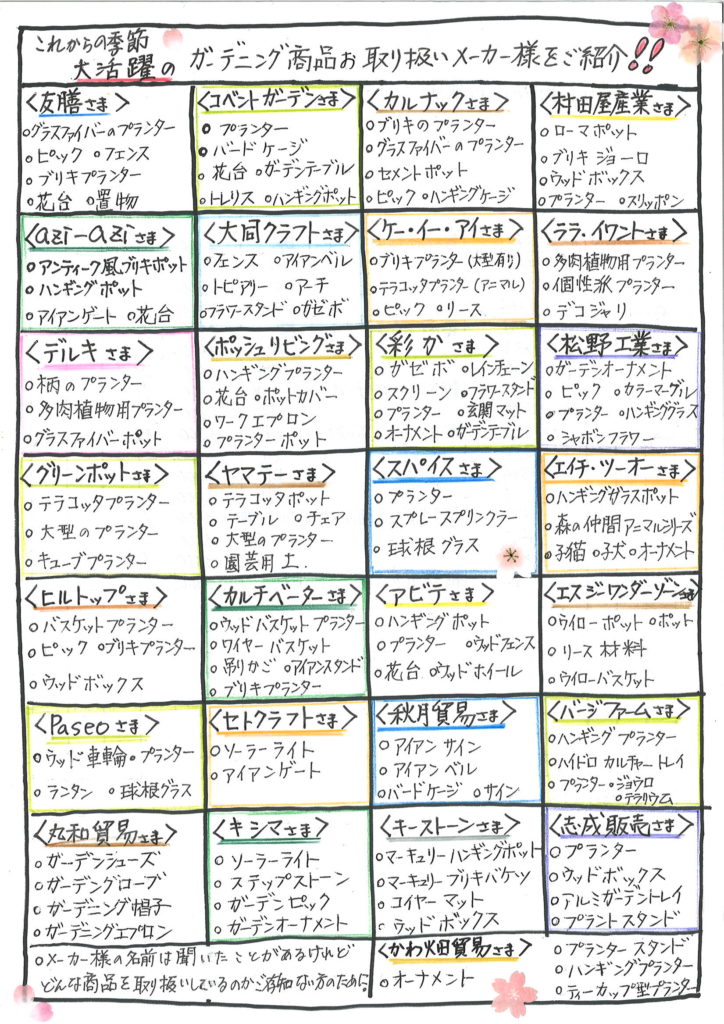 これからの季節
大活躍の ガーデニング商品お取り扱いメーカー様をご紹介!!
〈友膳さま〉
○グラスファイバーのプランター
○ピック ○フェンス
○ブリキプランター
○花台 ○置物
〈コベントガーデンさま〉
○プランター
○バードケージ
○花台 ○ガーデンテーブル
○トレリス ○ハンギングポット
〈カルナックさま〉
○ブリキのプランター
○グラスファイバーのプランター
○セメントポット
○ピック ○ハンギングケージ
〈村田屋産業さま〉
○ローマポット
○ブリキジョーロ
○ウッドボックス
○プランター ○スリッポン
〈azi-aziさま〉
○アンティーク風ブリキポット
○ハンギングポット
○アイアンゲート ○花台
〈大同クラフトさま〉
○フェンス ○アイアンベル
○トピアリー ○アーチ
○フラワースタンド ○ガゼボ
〈ケー・イー・アイさま〉
○ブリキプランター(大型有り)
○テラコッタプランター(アニマル)
○ピック ○リース
〈ララ・イワントさま〉
○多肉植物用プランター
○個性派プランター
○デコジャリ
〈デルキさま〉
○柄のプランター
○多肉植物用プランター
○グラスファイバーポット
〈ポッシュリビングさま〉
○ハンギングプランター
○花台 ○ポットカバー
○ワークエプロン
○プランターポット
〈彩かさま〉
○ガゼボ ○レインチェーン
○スクリーン ○フラワースタンド
○プランター ○玄関マット
○オーナメント ○ガーデンテーブル
〈松野工業さま〉
○ガーデンオーナメント
○ピック ○カラーマーグル
○プランター ○ハンギンググラス
○シャボンフラワー
〈グリーンポットさま〉
○テラコッタプランター
○大型のプランター
○キューブプランター
〈ヤマテーさま〉
○テラコッタポット
○テーブル ○チェア
○大型のプランター
○園芸用土.
〈スパイスさま〉
○プランター
○スプレースプリンクラー
○球根グラス
〈エイチ・ツーオーさま〉
○ハンギングガラスポット
○森の仲間アニマルシリーズ
○子猫 ○子犬 ○オーナメント
〈ヒルトップさま〉
○バスケットプランター
○ピック ○ブリキプランター
○ウッドボックス
〈カルチベーターさま〉
○ウッドバスケットプランター
○ワイヤーバスケット
○吊りかご ○アイアンスタンド
○ブリキプランター
〈アビテさま〉
○ハンギングポット
○プランター ○ウッドフェンス
○花台 ○ウッドホイール
〈エスジーワンダーゾーンさま〉
○ウイローポット ○ポット
○リース材料
○ウイローバスケット
〈Paseoさま〉
○ウッド車輪 ○プランター
○ランタン ○球根グラス
〈セトクラフトさま〉
○ソーラーライト
○アイアンゲート
〈秋月貿易さま〉
○アイアンサイン
○アイアンベル
○バードケージ ○サイン
〈バージファームさま〉
○ハンギングプランター
○ハイドロカルチャートレイ
○プランター ○ジョウロ
○テラリウム
〈丸和貿易さま〉
○ガーデンシューズ
○ガーデングローブ
○ガーデニング帽子
○ガーデニングエプロン
〈キシマさま〉
○ソーラーライト
○ステップストーン
○ガーデンピック
○ガーデンオーナメント
〈キーストーンさま〉
○マーキュリーハンギングポット
○マーキュリーブリキバケツ
○コイヤーマット
○ウッドボックス
〈志成販売さま〉
○プランター
○ウッドボックス
○アルミガーデントレイ
○プラントスタンド
○メーカー様の名前は聞いたことがあるけれど
どんな商品を取り扱いしているのかご存知ない方のために!
〈かわ畑貿易さま〉
○オーナメント
○プランタースタンド
○ハンギングプランター
○ティーカップ型プランター